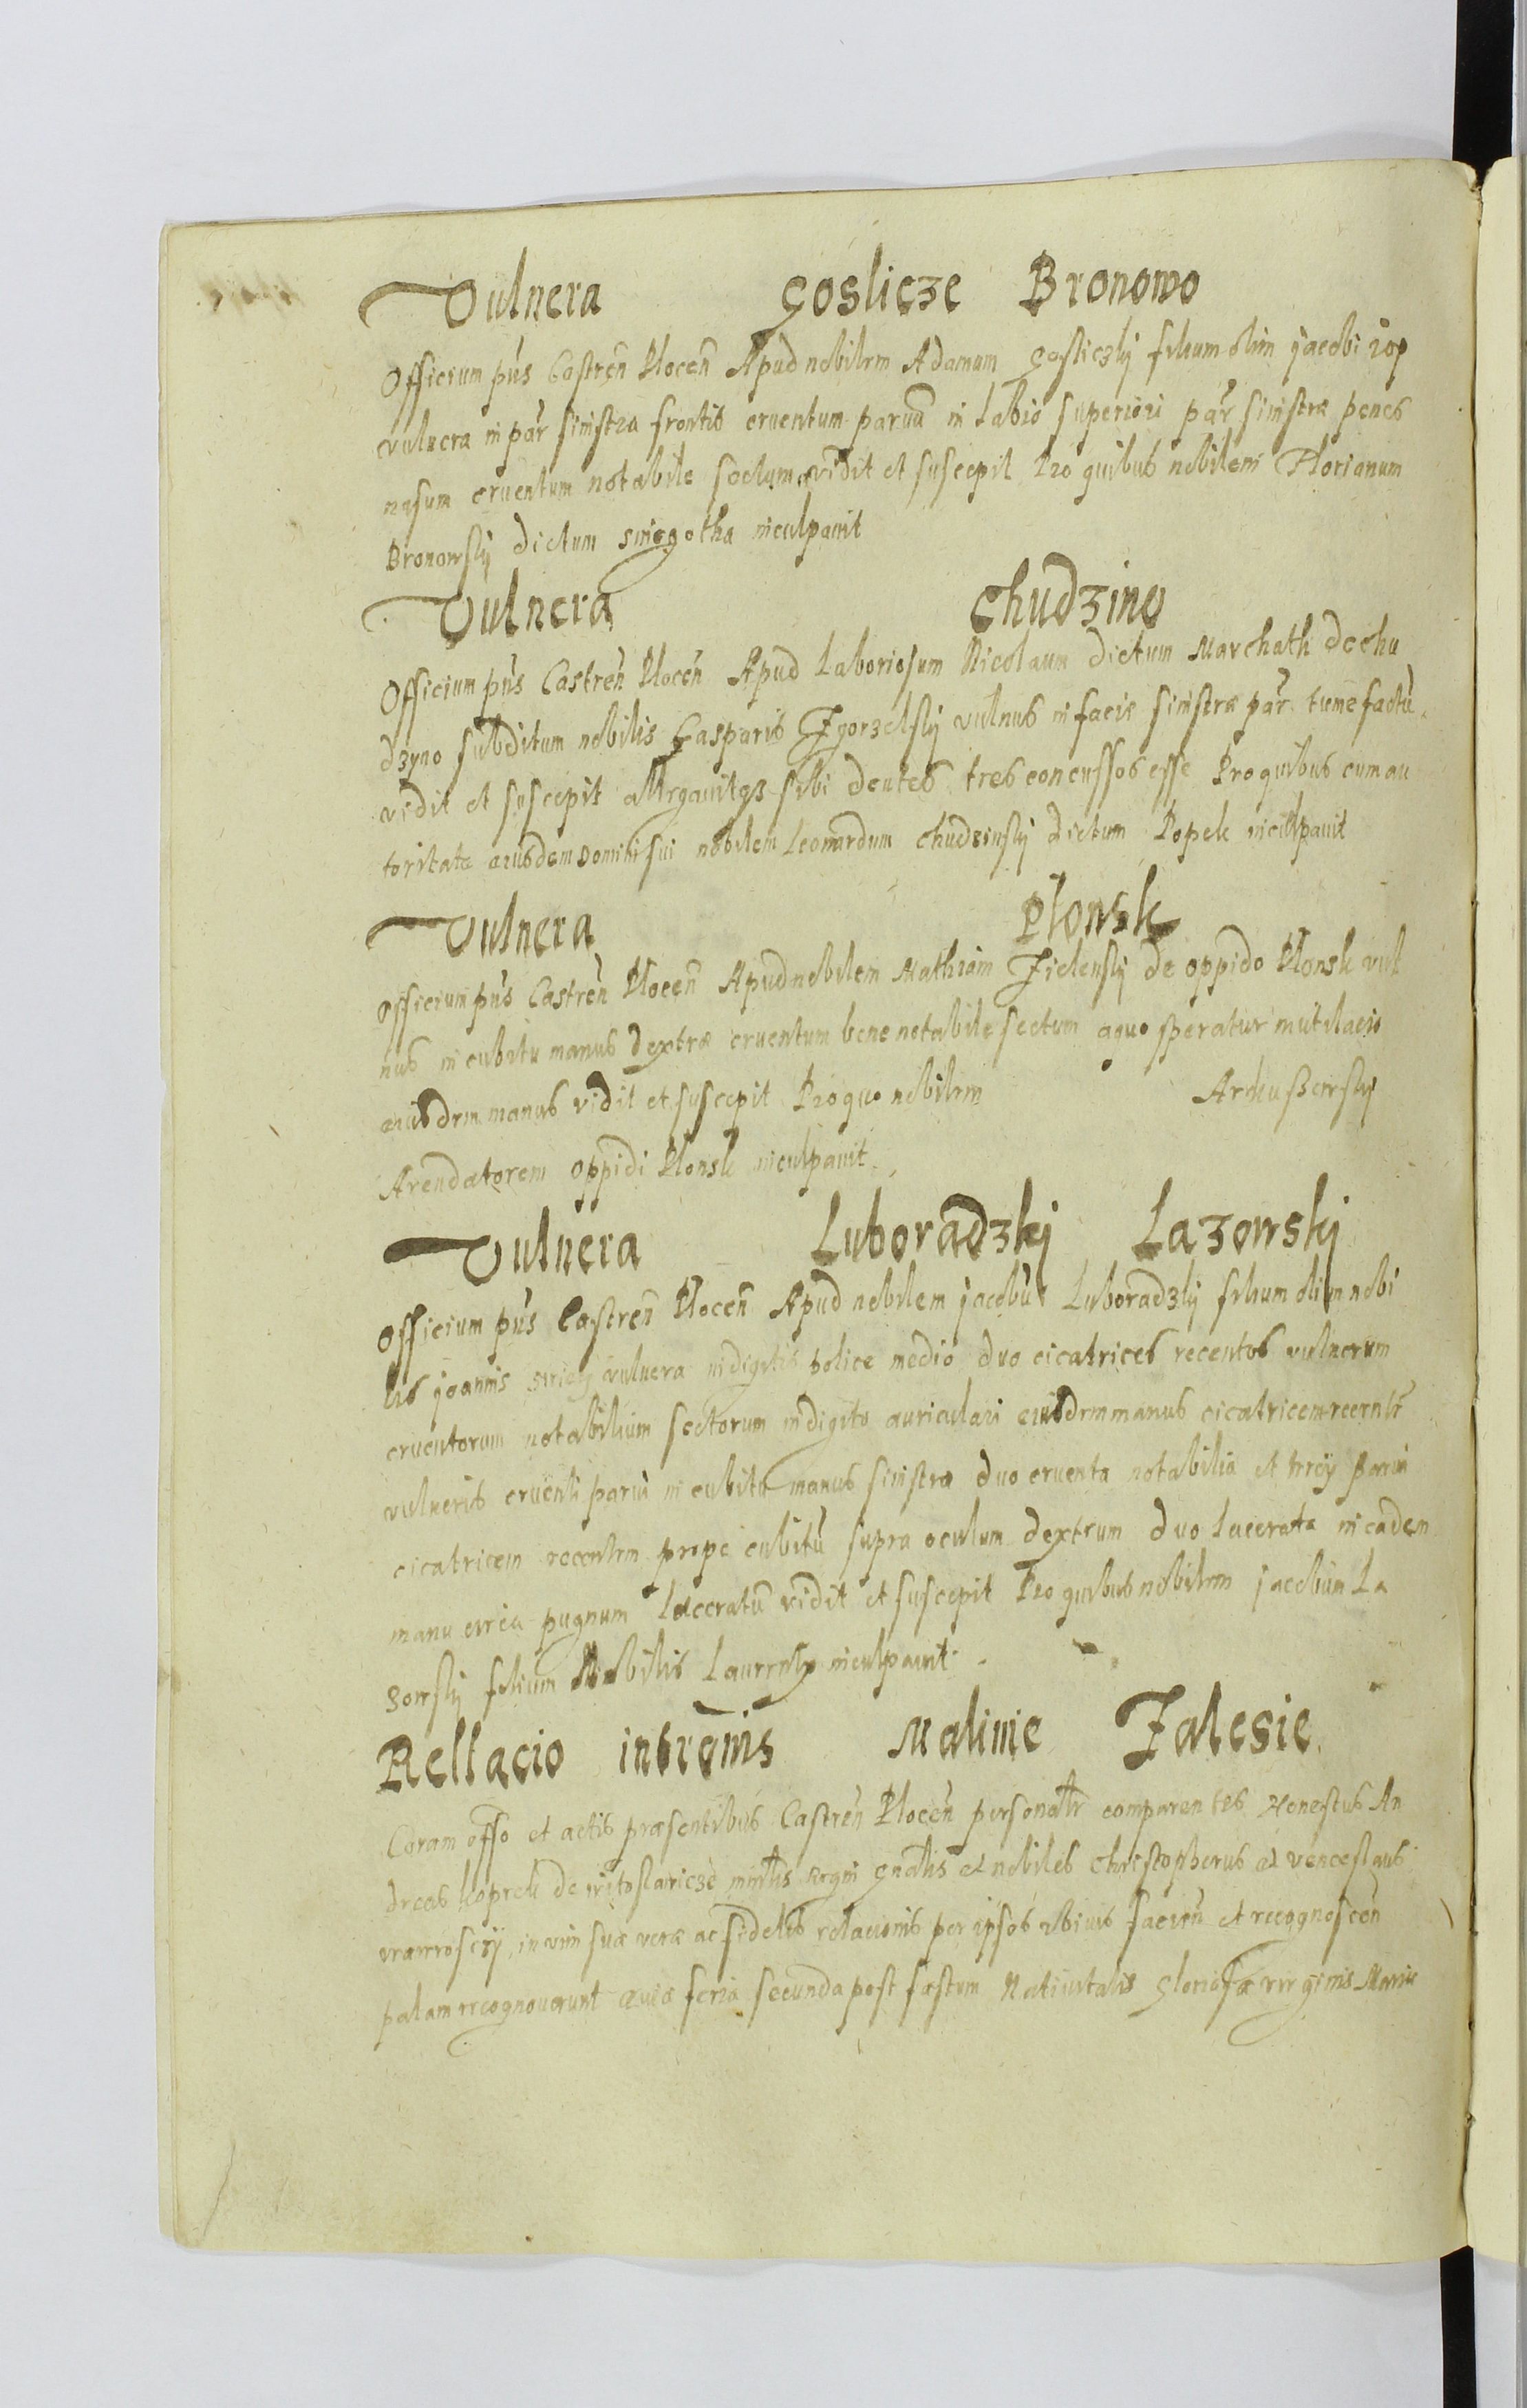 Vulnera Goslicze Bronowo
Officium pñs Castreñ Plocen̄ Apud nobilem Adamum Gosliczkij filium olim Jacobi
vulnera in par̄ sinistra frontis cruentum paruū in labio superiori par̄ sinistræ penes
nasum cruentum notabile sectum vidit et suscepit Pro quibus nobilem Florianum
Bronowskij dictum sniegotha inculpauit
Vulnera Chudzino
Officium pñs Castreñ Plocen̄ Apud Laboriosum Nicolaum dictum Marchath de Chu
dzyno subditum nobilis Gasparis Zgorzelskij vulnus in facie sinistræ par̄ tumefactū
vidit et suscepit allegauitqz sibi dentes tres concussos esse Pro quibus cum au
toritate eiusdem Domini sui nobilem Leonardum Chudzinskij dictum Popek inculpauit
Vulnera Plonsk
Officium pñs Castreñ Plocen̄ Apud nobilem Mathiam Zielenskij de oppido Plonsk vul
nus in cubitu manus dextræ cruentum bene notabile sectum a quo speratur mutilacio
eiusdem manus vidit et suscepit Pro quo nobilem Arkuszewskij
Arendatorem oppidi Plonsk inculpauit
Vulnera Luboradzkj Lazowskj
Officium pñs Castreñ Plocen̄ Apud nobilem Jacobū Luboradzkij filium olim nobi
lis Joannis vulnera in digitis police medio duo cicatrices recentes vulnerum
cruentorum notabilium sectorum in digito auriculari eiusdem manus cicatricem recentē
vulneris cruenti parui in cubitu manus sinistræ duo cruenta notabilia et parui
cicatricem recentem prope cubitū supra oculum dextrum duo lacerata in eadem
manu circa pugnum laceratū vidit et suscepit Pro quibus nobilem Jacobum La
zowskij filium Nobilis Laurentij inculpauit
Rellacio intromis Malinie Zalesie
Coram offo et actis præsentibus Castreñ Plocen̄ personalr̄ comparentes Honestus An
dreas Koprek de mintlis Regni gnālis et nobiles Christopherus et Venceslaus
in vim suæ veræ ac fidelis relacionis per ipsos facien̄ et recognoscen̄
palam recognouerunt quia feria secunda post festum Natiuitatis Gloriosæ virginis Mariæ